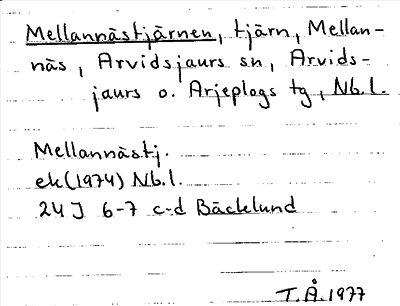 Mellannästjärnen, tjärn, Mellan-
näs, Arvidsjaurs sn, Arvids-
jaurs o. Arjeplogs tg, Nb.l.
Mellannästj.
ek(1974) Nb.l.
24J 6-7 c-d Bäcklund
T.Å.1977